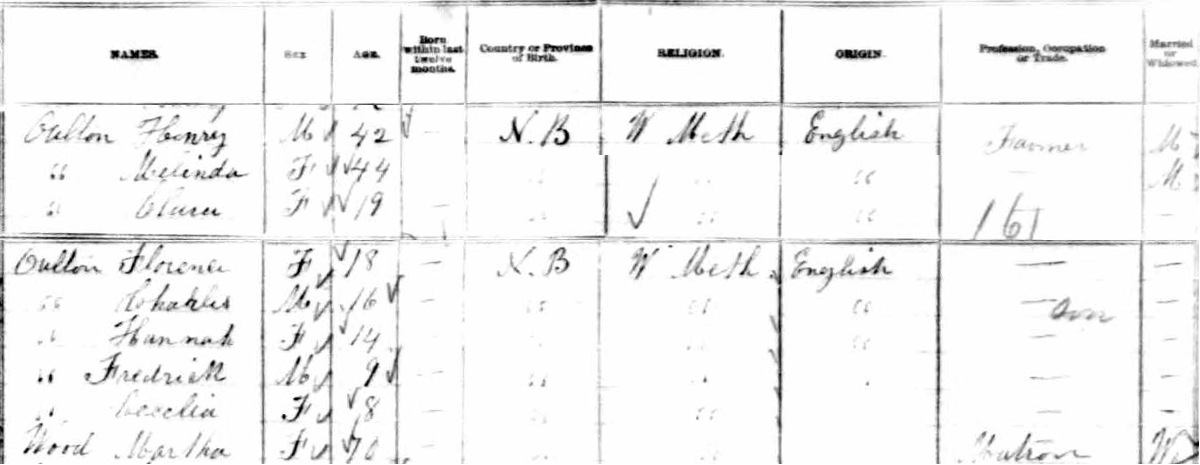 NAMES. Sex AGE. Born within last twelve months. Country or Province of Birth. RELIGION. ORIGIN. Profession, Occupation or Trade. Married or Widowed.
Oulton Henry M 42 — N.B W Meth English Farmer M
" Melinda F 44 " " " — M
" Clara F 19 — " " " 161 —
Oulton Florence F 18 — N.B W Meth English — —
" M 16 — " " " — son —
" Hannah F 14 — " " " — —
" Fredrick M 9 — " " " — —
" Cecelia F 8 — " " — —
Wood Martha F 70 — " " Matron W